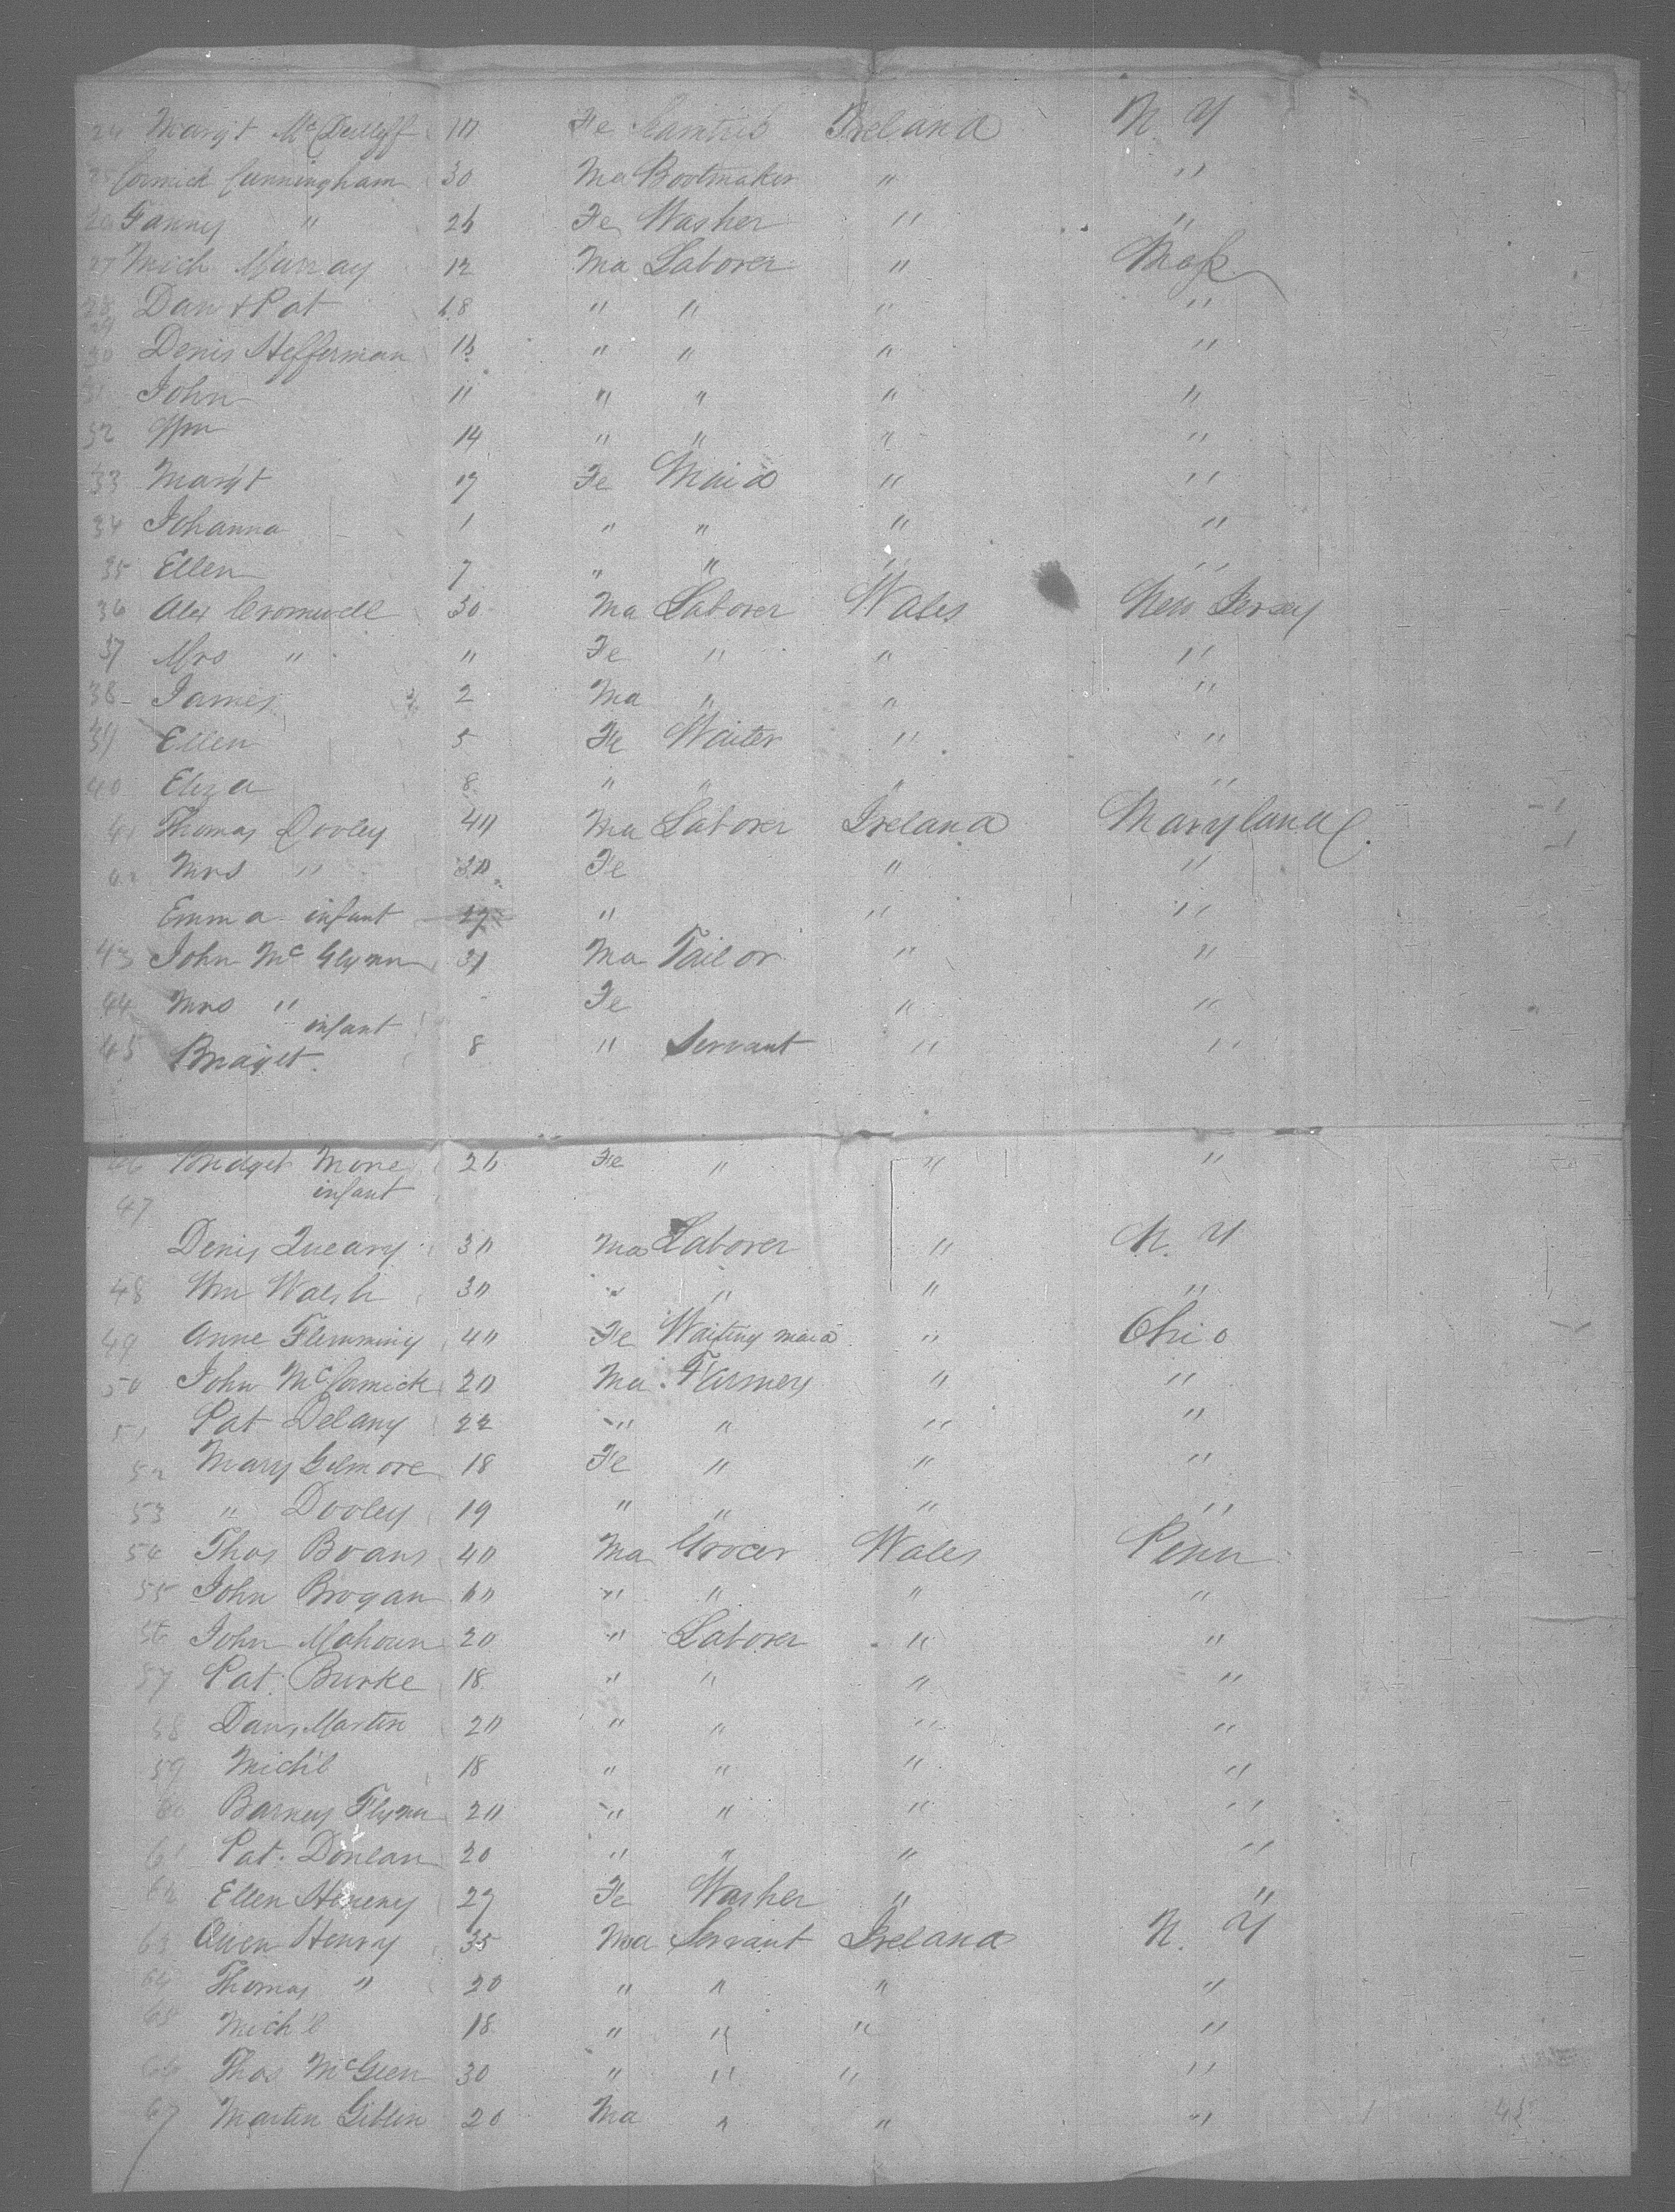 24 Margt McCullyff 10 Fe Seamtris Ireland N. Y
25 Cormick Cunningham 30 Ma Bootmaker " "
26 Fanny " 26 Fe Washer " "
27 Mich Murray 12 Ma Laborer " Mass
28 Dan & Pat 18 " " " "
29
30 Denis Hefferman 16 " " " "
31 John 11 " " " "
32 Wm 14 " " " "
33 Margt 17 Fe Maid " "
34 Johanna 1 " " " "
35 Ellen 7 " " " "
36 Alex Cromwell 30 Ma Laborer Wales New Jersey
37 Mrs " " Fe " " "
38 James 2 Ma " " "
39 Ellen 5 Fe Waiter " "
40 Eliza 8 " " " "
41 Thomas Dooley 40 Ma Laborer Ireland Maryland
42 Mrs " 30 Fe " "
Emma infant " " "
43 John McGlynn 31 Ma Tailor " "
44 Mrs " Fe " "
infant
45 Bridget 8 " Servant " "
46 Bridget More 26 Fe " " "
infant
47
Denis Queary 30 Ma Laborer " N. Y
48 Wm Walsh 30 " " " "
49 Anne Flemming 40 Fe Waiting maid " Ohio
50 John McCormick 20 Ma Farmer " "
51 Pat Delany 22 " " " "
52 Mary Gilmore 18 Fe " " "
53 " Dooley 19 " " " "
54 Thos Boans 40 Ma Grocer Wales Penn
55 John Brogan 60 " " " "
56 John Mahoun 20 " Laborer " "
57 Pat Burke 18 " " " "
58 Dan Martin 20 " " " "
59 Mich'l 18 " " " "
60 Barney Flynn 20 " " " "
61 Pat. Donlan 20 " " " "
62 Ellen 27 Fe Washer " "
63 Owen Henry 35 Ma Servant Ireland N. Y
64 Thomas " 20 " " " "
65 Mich'l 18 " " " "
66 Thos McGeen 30 " " " "
67 Martin Giblin 20 Ma " " "